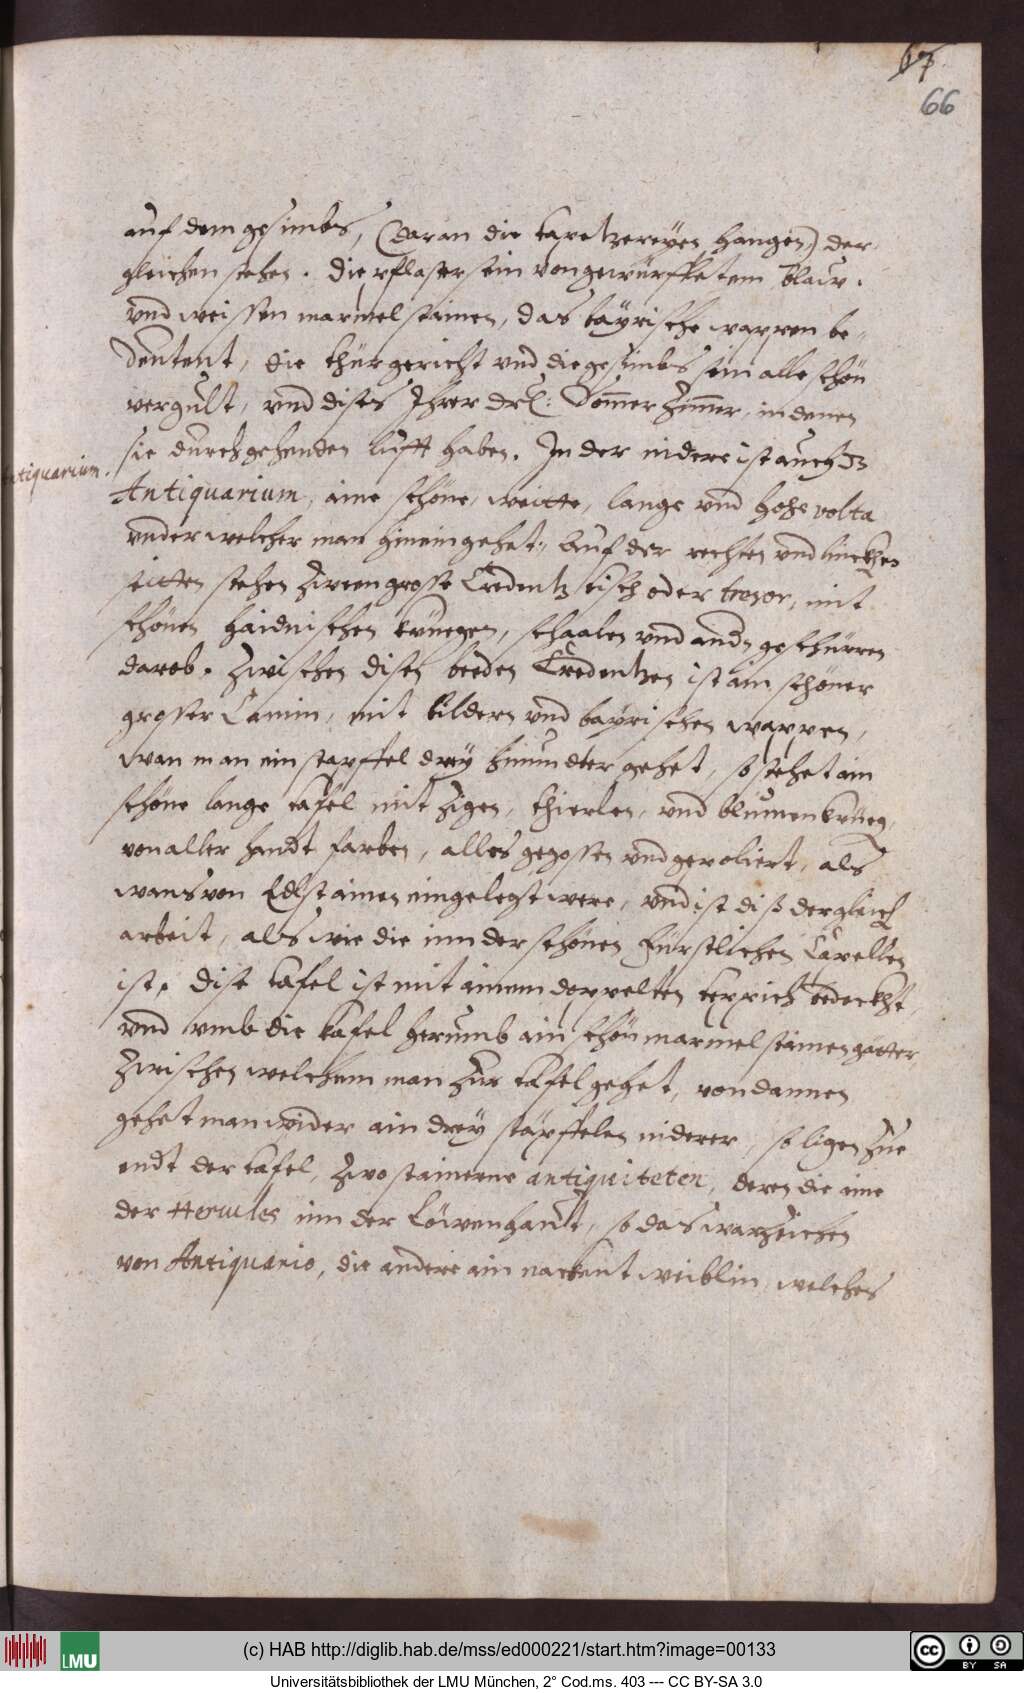 67
66
auf dem gesimbs, (daran die tapetzereyen hangen,) der„
gleichen stehen. die pflaster sein von gewürffletem blaw„
vnd weissen marmelstainen, das bayrische wappen be„
deutent, die thürgericht vnd die gesimbs sein alle schön
vergult, vnd dises Ihrer drl: Som̄er Zim̄er, in denen
sie durchgehenden lufft haben. In der nidere ist auch dz
Antiquarium.
Antiquarium, aine schöne, weitte, lange vnd hohe volta
vnder welcher man hineingehet, Auf der rechten vnd linckhen
seitten stehen zween grosse Credentz tisch oder tresor, mit
schönen haidnischen krüegen, schaalen vnd andn geschürren
darob. Zwischen disen beeden Credentzen ist ain schöner
grosser Camin, mit bildern vnd bayrischen wappen,
wan man ein stapffel drey hinundter gehet, so stehet ain
schöne lange tafel mit Zigen, thierlen, vnd blumenkrüeg,
von aller handt farben, alles gegossen vnd gepoliert, als
wans von Edlstainen eingelegt were, vnd ist diß dergleich
arbeit, als wie die inn der schönen Fürstlichen Capellen
ist, dise tafel ist mit ainem doppelten teppich bedeckht,
vnd vmb die tafel herumb ain schön marmelstainen gatter,
Zwischen welchem man zur tafel gehet, von dannen
gehet man wider ain drey stäpffelen niderer, so ligen zue
endt der tafel, zwo stainerne antiquiteten, deren die aine
der Hercules inn der Löwenhaut, so das warzeichen
von Antiquario, die andere ain nackent weiblin, welches
(c) HAB http://diglib.hab.de/mss/ed000221/start.htm?image=00133
LMU
cc
BY SA
Universitätsbibliothek der LMU München, 2° Cod.ms. 403 --- CC BY-SA 3.0